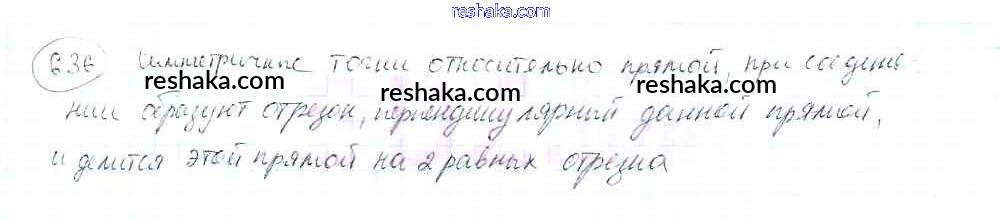 reshaka.com
636 Симметричные точки относительно прямой, при соедине-
reshaka.com reshaka.com reshaka.com
нии образуют отрезок, перпендикулярный данной прямой,
и делится этой прямой на 2 равных отрезка
reshaka.com reshaka.com reshaka.com